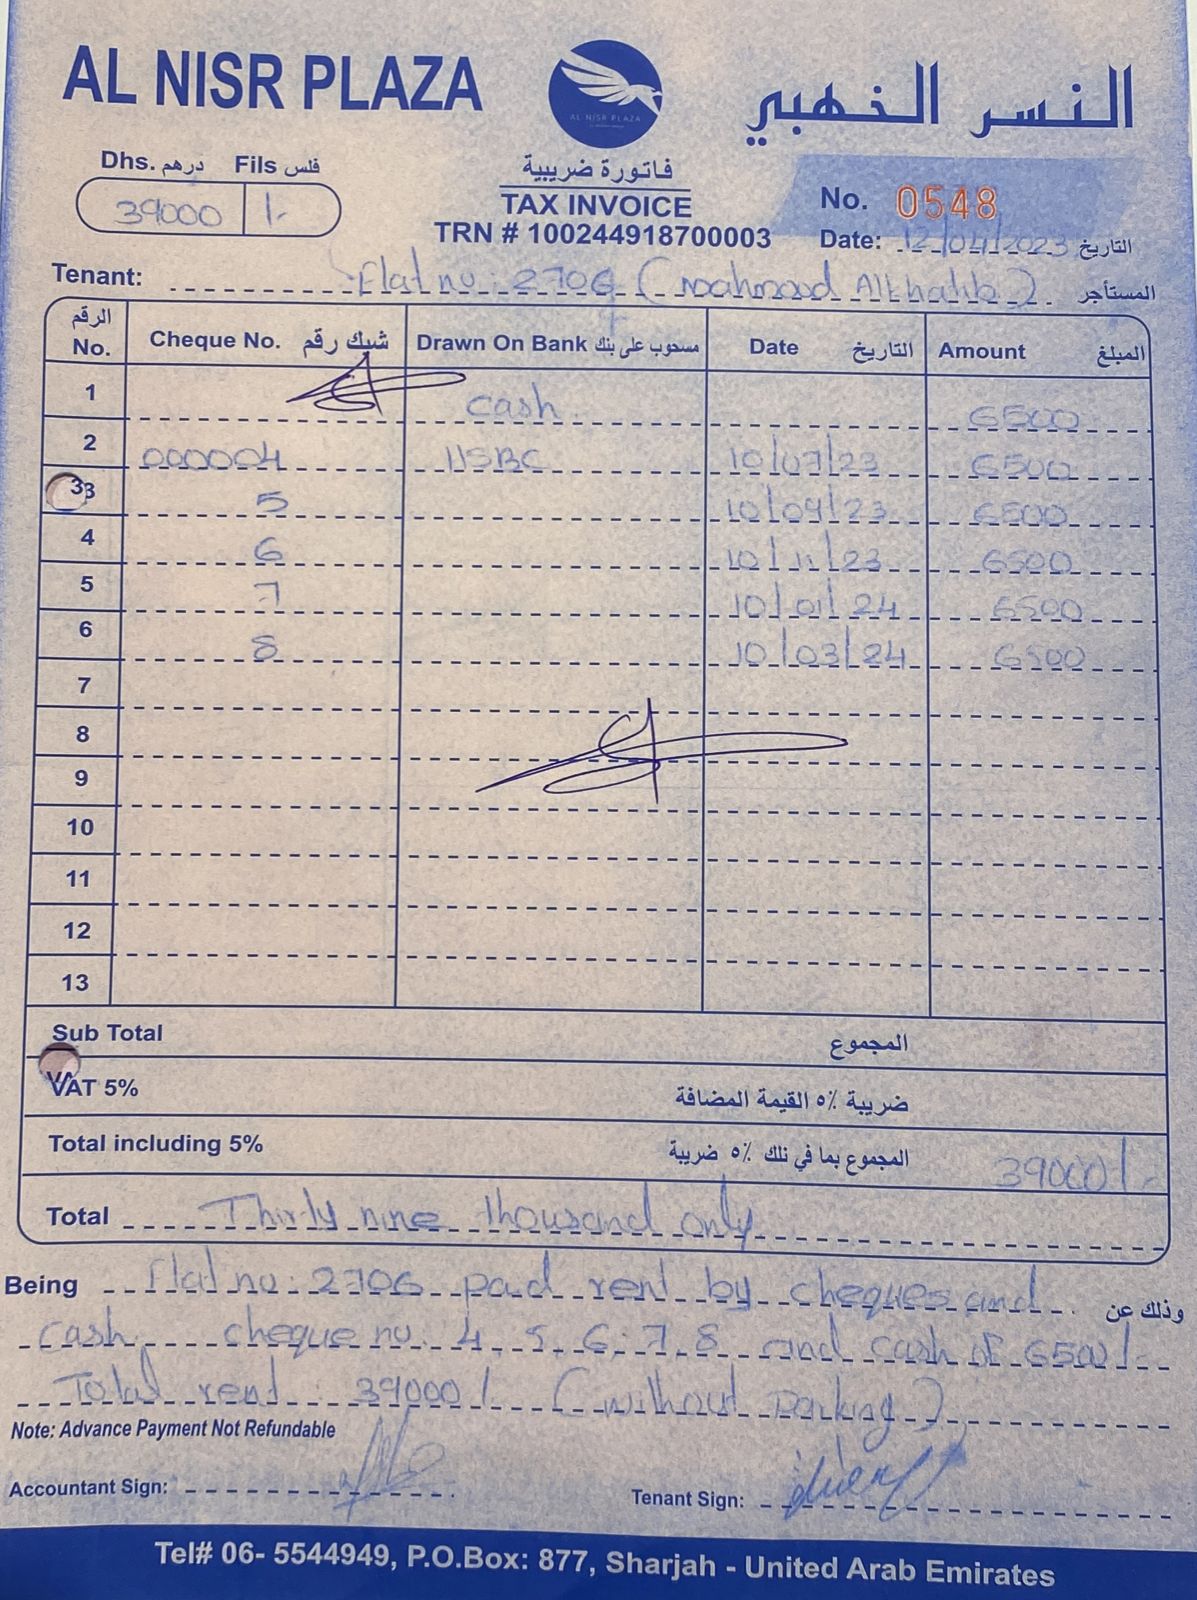 AL NISR PLAZA
AL NISR PLAZA
النسر الذهبي
Dhs. درهم Fils فلس
39000 /-
فاتورة ضريبية
TAX INVOICE
TRN # 100244918700003
No. 0548
Date: 12/04/2023 التاريخ
Tenant: Flat no: 2706 (Mahmood Alkhatib) المستأجر
الرقم No. Cheque No. شيك رقم Drawn On Bank مسحوب على بنك Date التاريخ Amount المبلغ
1 cash 6500
2 000004 HSBC 10/07/23 6500
3 5 10/09/23 6500
4 6 10/11/23 6500
5 7 10/01/24 6500
6 8 10/03/24 6500
7
8
9
10
11
12
13
Sub Total المجموع
VAT 5% ضريبة ٥% القيمة المضافة
Total including 5% المجموع بما في ذلك ٥% ضريبة 39000/-
Total Thirty nine thousand only
Being Flat no: 2706 paid rent by cheques and وذلك عن
cash cheque no: 4, 5, 6, 7, 8 and cash of 6500/-
Total rent: 39000/- (without parking)
Note: Advance Payment Not Refundable
Accountant Sign: Tenant Sign:
Tel# 06- 5544949, P.O.Box: 877, Sharjah - United Arab Emirates